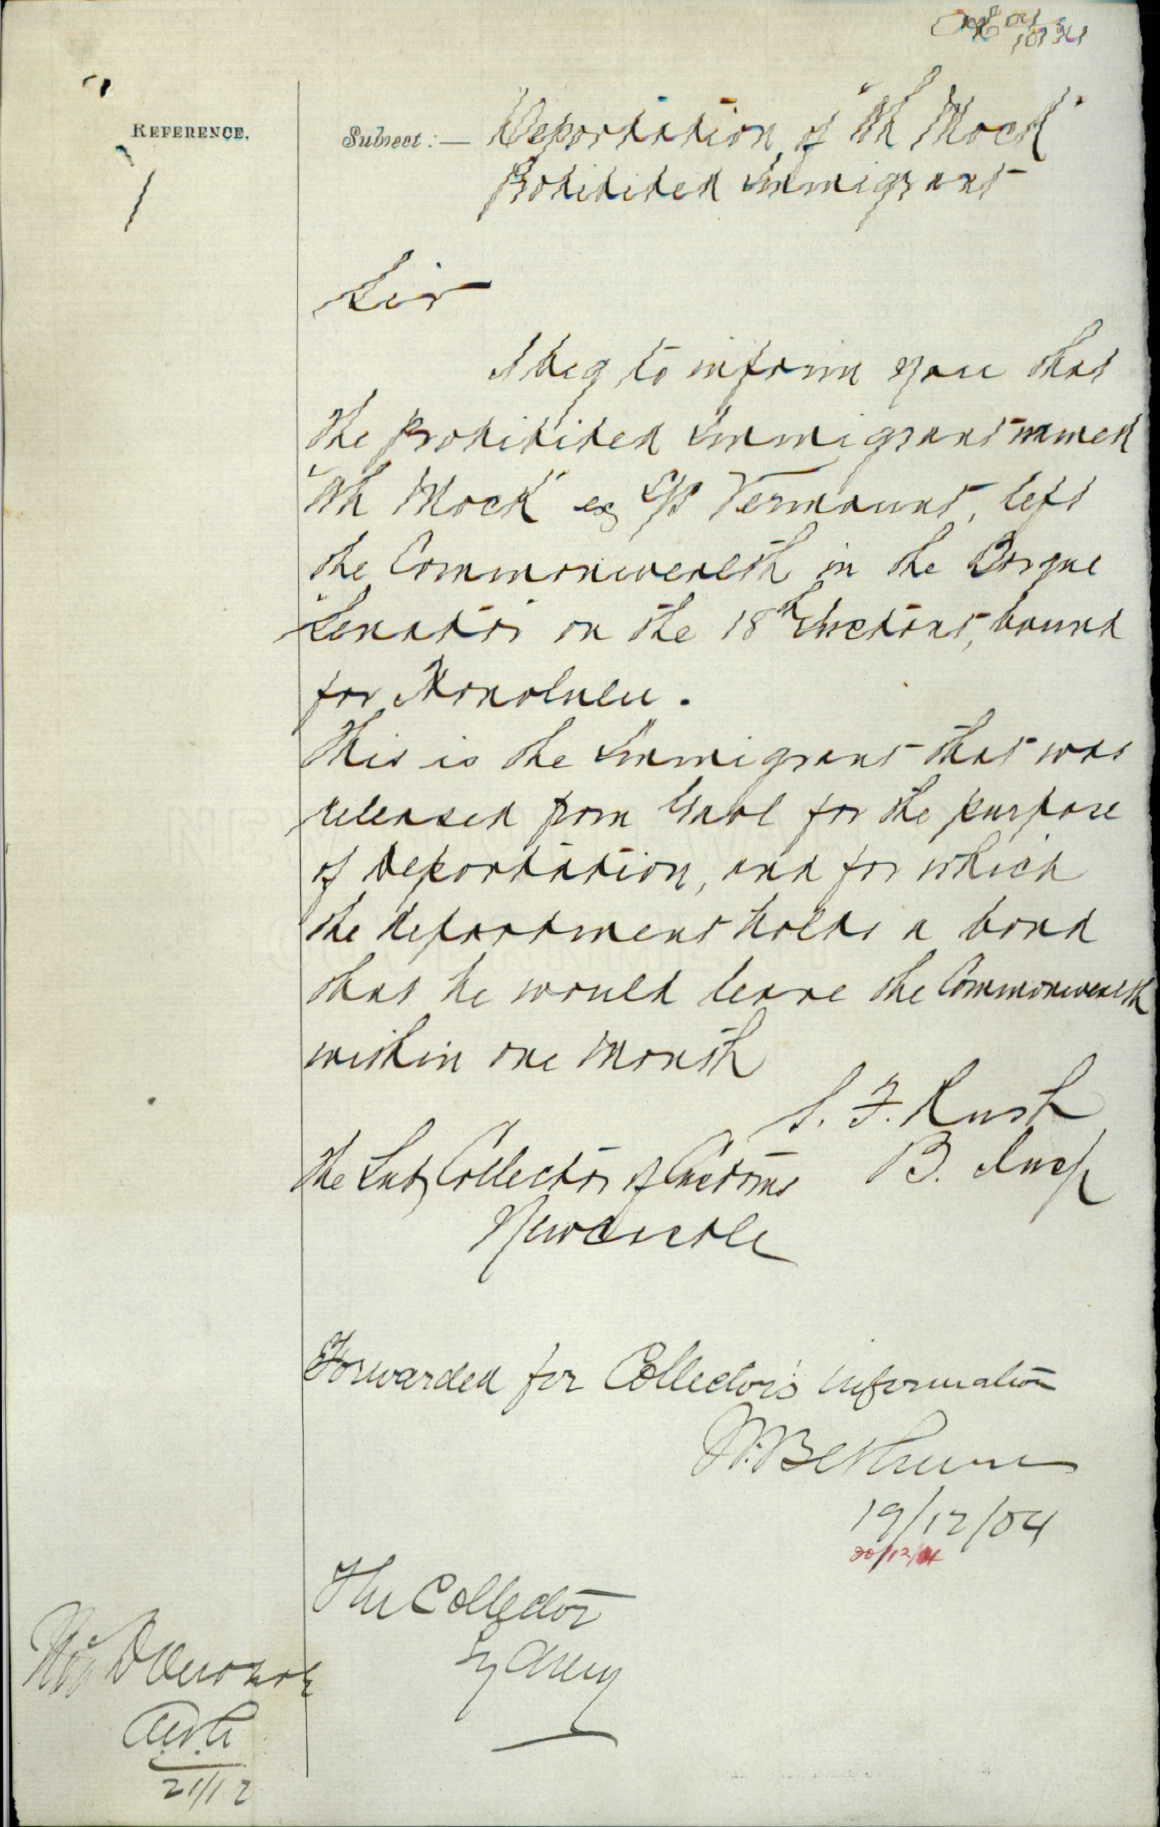 REFERENCE.
Subject:— Deportation of "Ah Mock"
Prohibited Immigrant
Sir
I beg to inform you that
the Prohibited Immigrant named
"Ah Mock" ex S/S Vermount, left
the Commonwealth in the Barque
"Senator" on the 18th Instant, bound
for Honolulu.
This is the Immigrant that was
released from Gaol for the purpose
of Deportation, and for which
the department holds a bond
that he would leave the Commonwealth
within one Month
S. F. Rush
B. Insp
The Sub Collector of Customs
Newcastle
Forwarded for Collector's information
W. Bethune
19/12/04
20/12/04
The Collector
Sydney
Mr
21/12